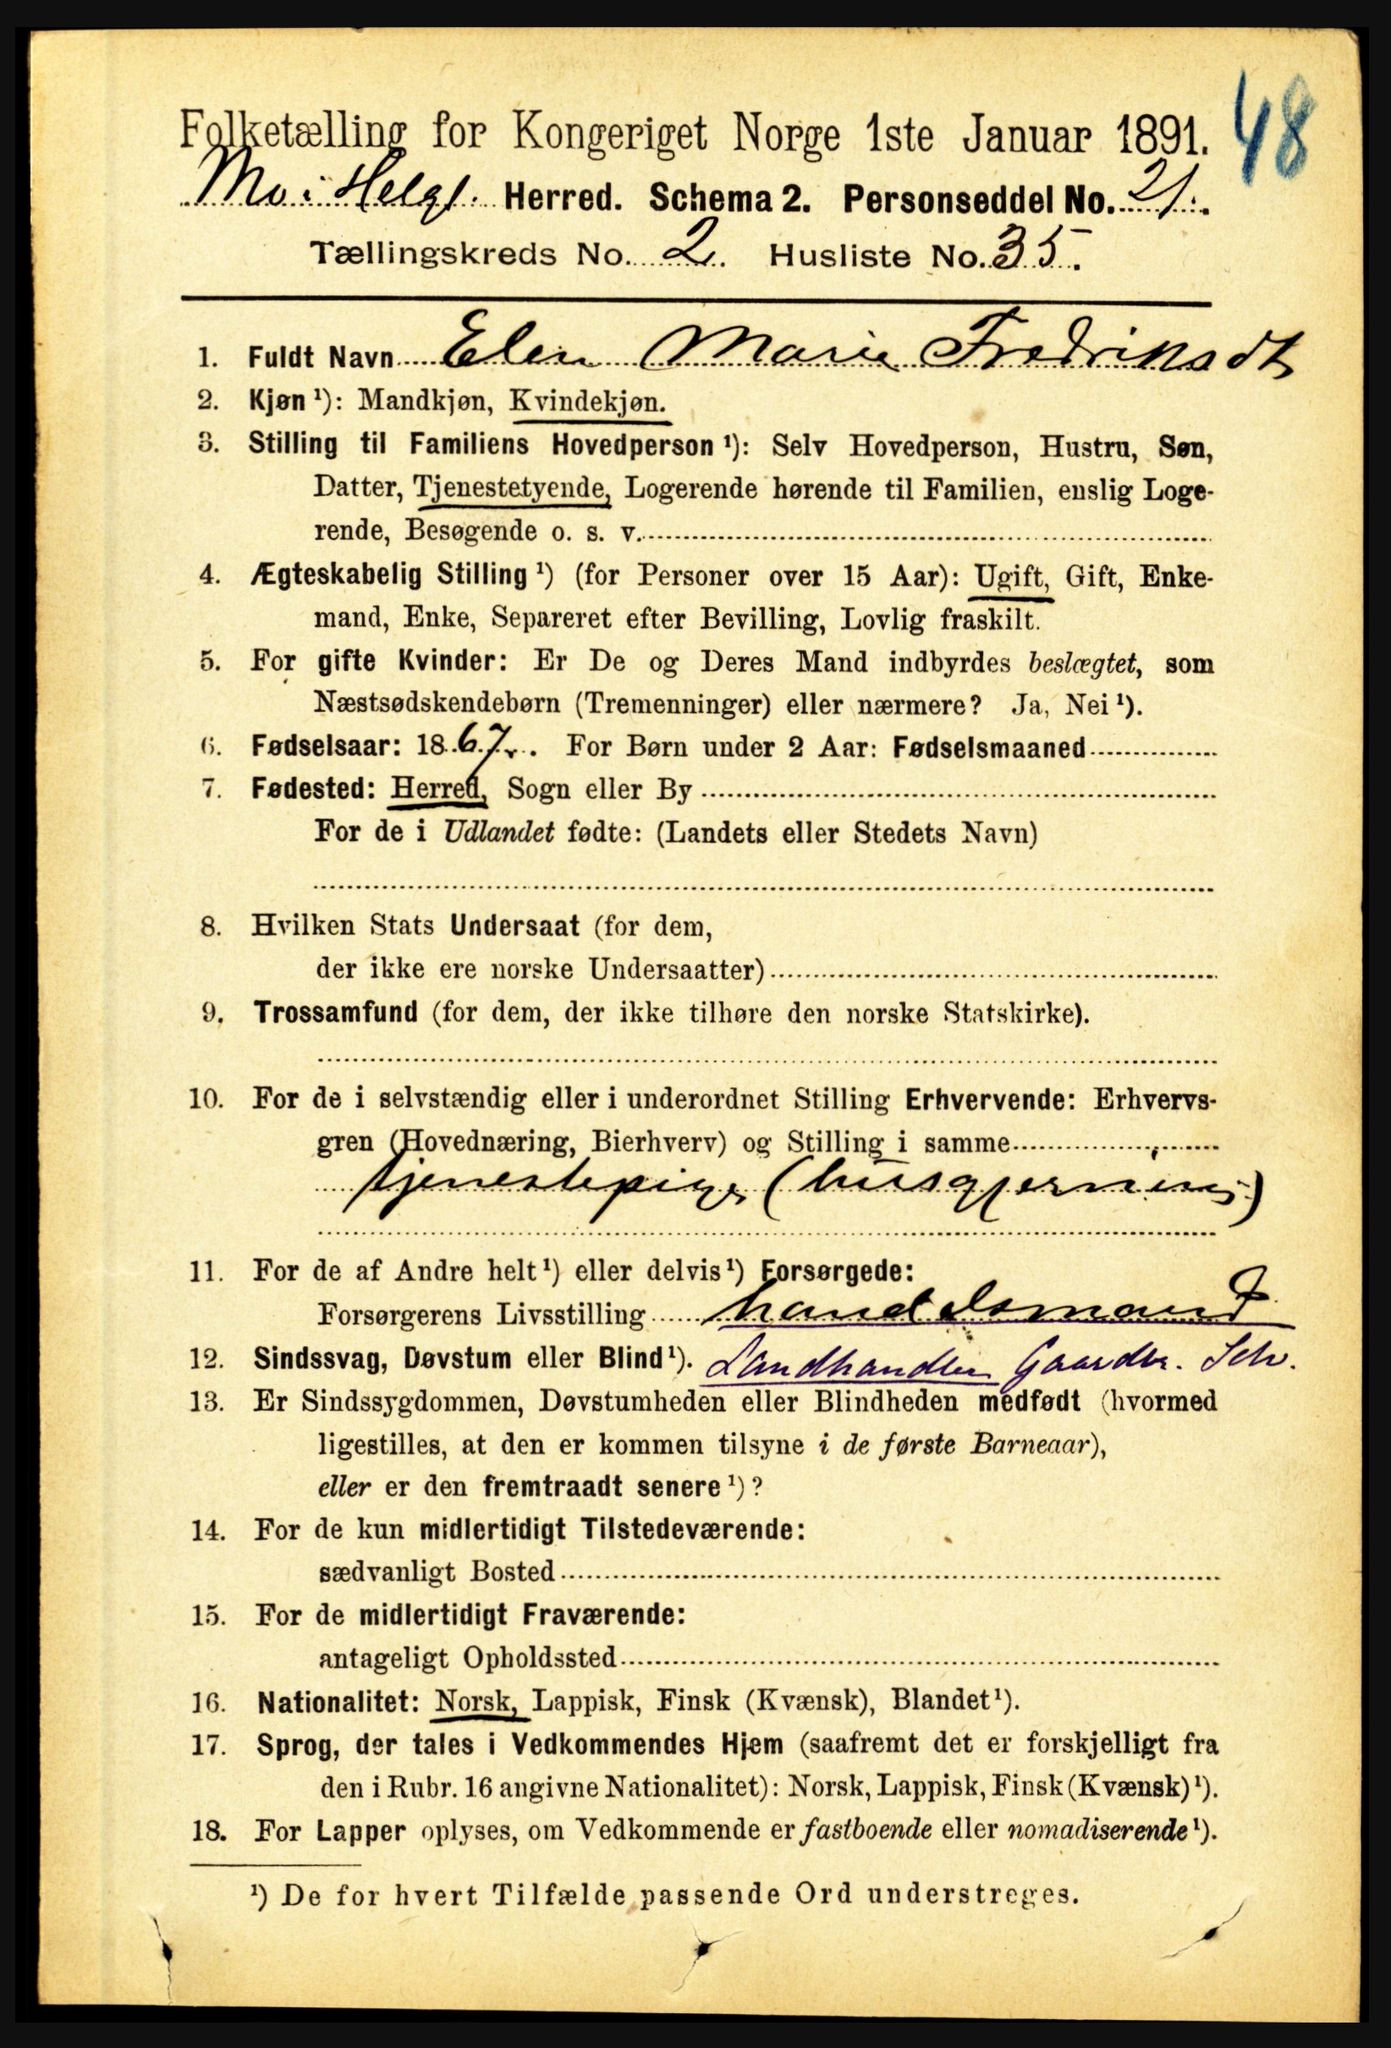 48
Folketælling for Kongeriget Norge 1ste Januar 1891.
Mo i Helgl. Herred. Schema 2. Personseddel No. 21.
Tællingskreds No. 2. Husliste No. 35.
1. Fuldt Navn Elen Marie Fredriksdt
2. Kjøn ¹): Mandkjøn, Kvindekjøn.
3. Stilling til Familiens Hovedperson ¹): Selv Hovedperson, Hustru, Søn,
Datter, Tjenestetyende, Logerende hørende til Familien, enslig Loge-
rende, Besøgende o. s. v.
4. Ægteskabelig Stilling ¹) (for Personer over 15 Aar): Ugift, Gift, Enke-
mand, Enke, Separeret efter Bevilling, Lovlig fraskilt.
5. For gifte Kvinder: Er De og Deres Mand indbyrdes beslægtet, som
Næstsødskendebørn (Tremenninger) eller nærmere? Ja, Nei ¹).
6. Fødselsaar: 1867. For Børn under 2 Aar: Fødselsmaaned
7. Fødested: Herred, Sogn eller By
For de i Udlandet fødte: (Landets eller Stedets Navn)
8. Hvilken Stats Undersaat (for dem,
der ikke ere norske Undersaatter)
9. Trossamfund (for dem, der ikke tilhøre den norske Statskirke).
10. For de i selvstændig eller i underordnet Stilling Erhvervende: Erhvervs-
gren (Hovednæring, Bierhverv) og Stilling i samme
tjenestepige (husgjerning)
11. For de af Andre helt ¹) eller delvis ¹) Forsørgede:
Forsørgerens Livsstilling handelsmand
12. Sindssvag, Døvstum eller Blind ¹). Landhandler Gaardbr. Selv.
13. Er Sindssygdommen, Døvstumheden eller Blindheden medfødt (hvormed
ligestilles, at den er kommen tilsyne i de første Barneaar),
eller er den fremtraadt senere ¹)?
14. For de kun midlertidigt Tilstedeværende:
sædvanligt Bosted
15. For de midlertidigt Fraværende:
antageligt Opholdssted
16. Nationalitet: Norsk, Lappisk, Finsk (Kvænsk), Blandet ¹).
17. Sprog, der tales i Vedkommendes Hjem (saafremt det er forskjelligt fra
den i Rubr. 16 angivne Nationalitet): Norsk, Lappisk, Finsk (Kvænsk) ¹).
18. For Lapper oplyses, om Vedkommende er fastboende eller nomadiserende ¹).
¹) De for hvert Tilfælde passende Ord understreges.